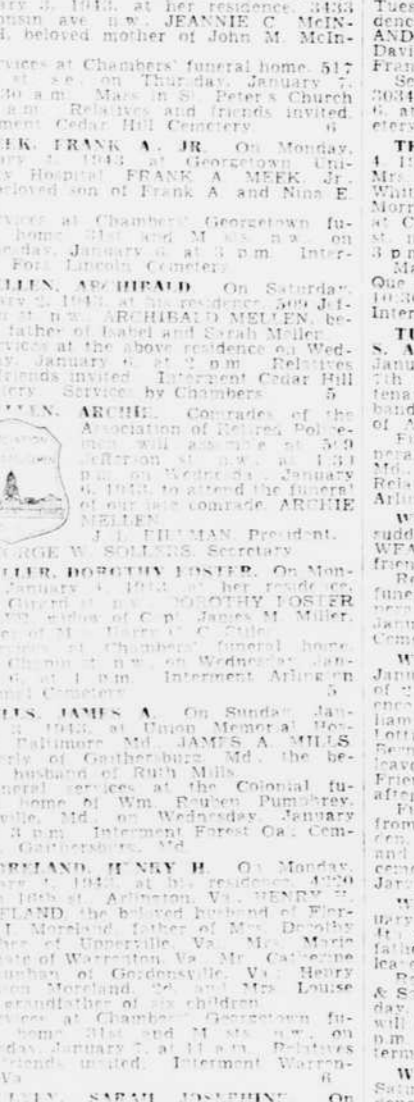 ary 3, 1943, at her residence, 3433
onsin ave n.w., JEANNIE C McIN-
H, beloved mother of John M. McIn-
vices at Chambers' funeral home, 517
st. s.e., on Thursday, January 7,
30 a.m. Mass in St. Peter's Church
a.m. Relatives and friends invited.
ment Cedar Hill Cemetery. 6
EK, FRANK A., JR. On Monday,
ary 4, 1943, at Georgetown Uni-
y Hospital FRANK A MEEK, Jr.,
beloved son of Frank A. and Nina E.
vices at Chambers' Georgetown fu-
home 31st and M sts. n.w., on
esday, January 6, at 3 p.m. Inter-
Fort Lincoln Cemetery.
ELLEN, ARCHIBALD On Saturday,
ary 2, 1943, at his residence, 509 Jef-
n st. n.w., ARCHIBALD MELLEN, be-
father of Isabel and Sarah Mellen.
vices at the above residence on Wed-
y, January 6, at 2 p.m. Relatives
friends invited. Interment Cedar Hill
tery. Services by Chambers. 5
LLEN, ARCHIE. Comrades of the
Association of Retired Police-
men will assemble at 509
Jefferson st. n.w., at 1:30
p.m. on Wednesday, January
6, 1943, to attend the funeral
of our late comrade, ARCHIE
MELLEN.
J. L. FILLMAN, President.
ORGE W. SOLLERS, Secretary.
LLER, DOROTHY FOSTER. On Mon-
January 4, 1943, at her residence,
Girard st. n.w., DOROTHY FOSTER
widow of Capt. James M. Miller,
vices at Chambers' funeral home,
Chapin st. n.w., on Wednesday, Jan-
6, at 1 p.m. Interment Arlington
nal Cemetery. 5
LLS, JAMES A. On Sunday, Jan-
3, 1943, at Union Memorial Hos-
Baltimore, Md., JAMES A. MILLS
erly of Gaithersburg, Md., the be-
husband of Ruth Mills.
neral services at the Colonial fu-
home of Wm. Reuben Pumphrey,
ville, Md., on Wednesday, January
3 p.m. Interment Forest Oak Cem-
Gaithersburg, Md.
ORELAND, HENRY H. On Monday,
ary 4, 1943, at his residence,
16th st., Arlington, Va., HENRY H.
ELAND, the beloved husband of Flor-
I. Moreland, father of Mrs. Dorothy
her of Upperville, Va., Mrs. Marie
ate of Warrenton, Va., Mr. Catherine
unhan of Gordonsville, Va., Henry
son Moreland, 2d, and Mrs. Louise
grandfather of six children.
vices at Chambers' Georgetown fu-
home, 31st and M sts. n.w., on
day, January 7, at 11 a.m. Relatives
friends invited. Interment Warren-
Va. 6
SARAH JOSEPHINE. On
Tues
denc
AND
Davi
Fran
Se
3034
6, at
etery
TH
4, 19
Mrs.
Whit
Morr
at C
st. n
3 p.m
Ma
Que
10:30
Inter
TI
S. A
Janu
7th
tenan
band
of A
Fu
nera
Md.
Rela
Arlin
W
sudd
WEA
frien
Re
fune
Janu
Ceme
W
Janu
of
ence
liam
Lotti
leave
Frien
after
Fu
from
den
and
ceme
Janu
W
uary
4t
fathe
leave
& So
day
will
p.m.
term
W
Satu